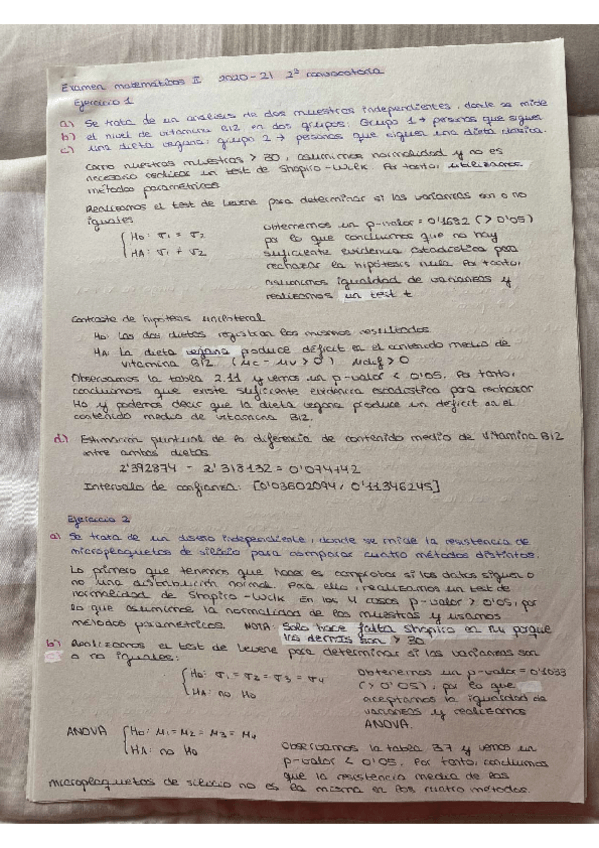 Examen matemáticas II 2020-21 2ª convocatoria
Ejercicio 1
a) Se trata de un análisis de dos muestras independientes, donde se mide
b) el nivel de vitamina B12 en dos grupos. Grupo 1 → personas que siguen
c) una dieta vegana; grupo 2 → personas que siguen una dieta clásica.
Como nuestras muestras > 30, asumimos normalidad y no es
necesario realizar un test de Shapiro-Wilk. Por tanto, utilizamos
métodos paramétricos.
Realizamos el test de Levene para determinar si las varianzas son o no
iguales
H0: σ1 = σ2
HA: σ1 ≠ σ2
obtenemos un p-valor = 0'1692 (> 0'05)
por lo que concluimos que no hay
suficiente evidencia estadística para
rechazar la hipótesis nula. Por tanto,
asumimos igualdad de varianzas y
realizamos un test t
Contraste de hipótesis unilateral
H0: Las dos dietas registran los mismos resultados.
HA: La dieta vegana produce déficit en el contenido medio de
vitamina B12 (μc - μv > 0) μdif > 0
Observamos la tabla 2.11 y vemos un p-valor < 0'05. Por tanto,
concluimos que existe suficiente evidencia estadística para rechazar
H0 y podemos decir que la dieta vegana produce un déficit en el
contenido medio de vitamina B12.
d) Estimación puntual de la diferencia de contenido medio de vitamina B12
entre ambas dietas
2'392874 - 2'318132 = 0'074742
Intervalo de confianza: [0'03602094, 0'11346245]
Ejercicio 2
a) Se trata de un diseño independiente, donde se mide la resistencia de
microplaquetas de silicio para comparar cuatro métodos distintos.
Lo primero que tenemos que hacer es comprobar si los datos siguen o
no una distribución normal. Para ello, realizamos un test de
normalidad de Shapiro-Wilk. En los 4 casos p-valor > 0'05, por
lo que asumimos la normalidad de las muestras y usamos
métodos paramétricos. NOTA: Solo hace falta Shapiro en porque
los demás son > 30
b) Realizamos el test de Levene para determinar si las varianzas son
o no iguales:
H0: σ1 = σ2 = σ3 = σ4
HA: no H0
obtenemos un p-valor = 0'1033
(> 0'05), por lo que
aceptamos la igualdad de
varianzas y realizamos
ANOVA.
ANOVA
H0: μ1 = μ2 = μ3 = μ4
HA: no H0
Observamos la tabla 3.7 y vemos un
p-valor < 0'05. Por tanto, concluimos
que la resistencia media de las
microplaquetas de silicio no es la misma en los cuatro métodos.